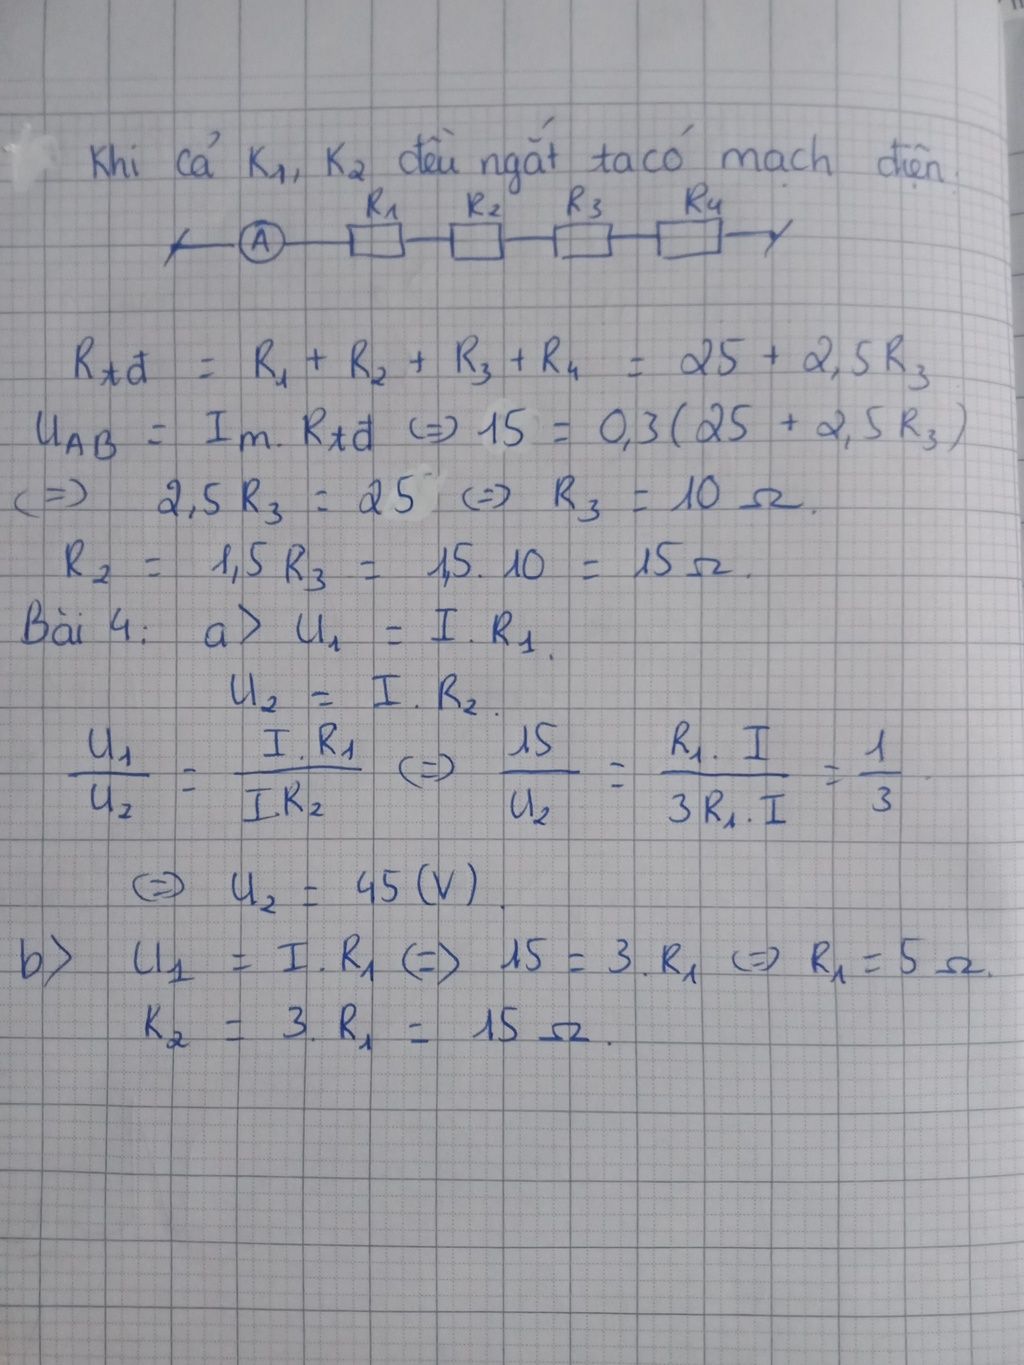 Khi cả K1, K2 đều ngắt ta có mạch điện.
A R1 R2 R3 R4
Rtđ = R1 + R2 + R3 + R4 = 25 + 2,5R3
UAB = Im. Rtđ <=> 15 = 0,3(25 + 2,5R3)
<=> 2,5R3 = 25 <=> R3 = 10 Ω.
R2 = 1,5R3 = 1,5. 10 = 15 Ω.
Bài 4: a> U1 = I. R1.
U2 = I. R2.
U1/U2 = I. R1/I.R2 <=> 15/U2 = R1. I/3R1. I = 1/3
<=> U2 = 45 (V).
b> U1 = I. R1 <=> 15 = 3. R1 <=> R1 = 5 Ω.
R2 = 3. R1 = 15 Ω.